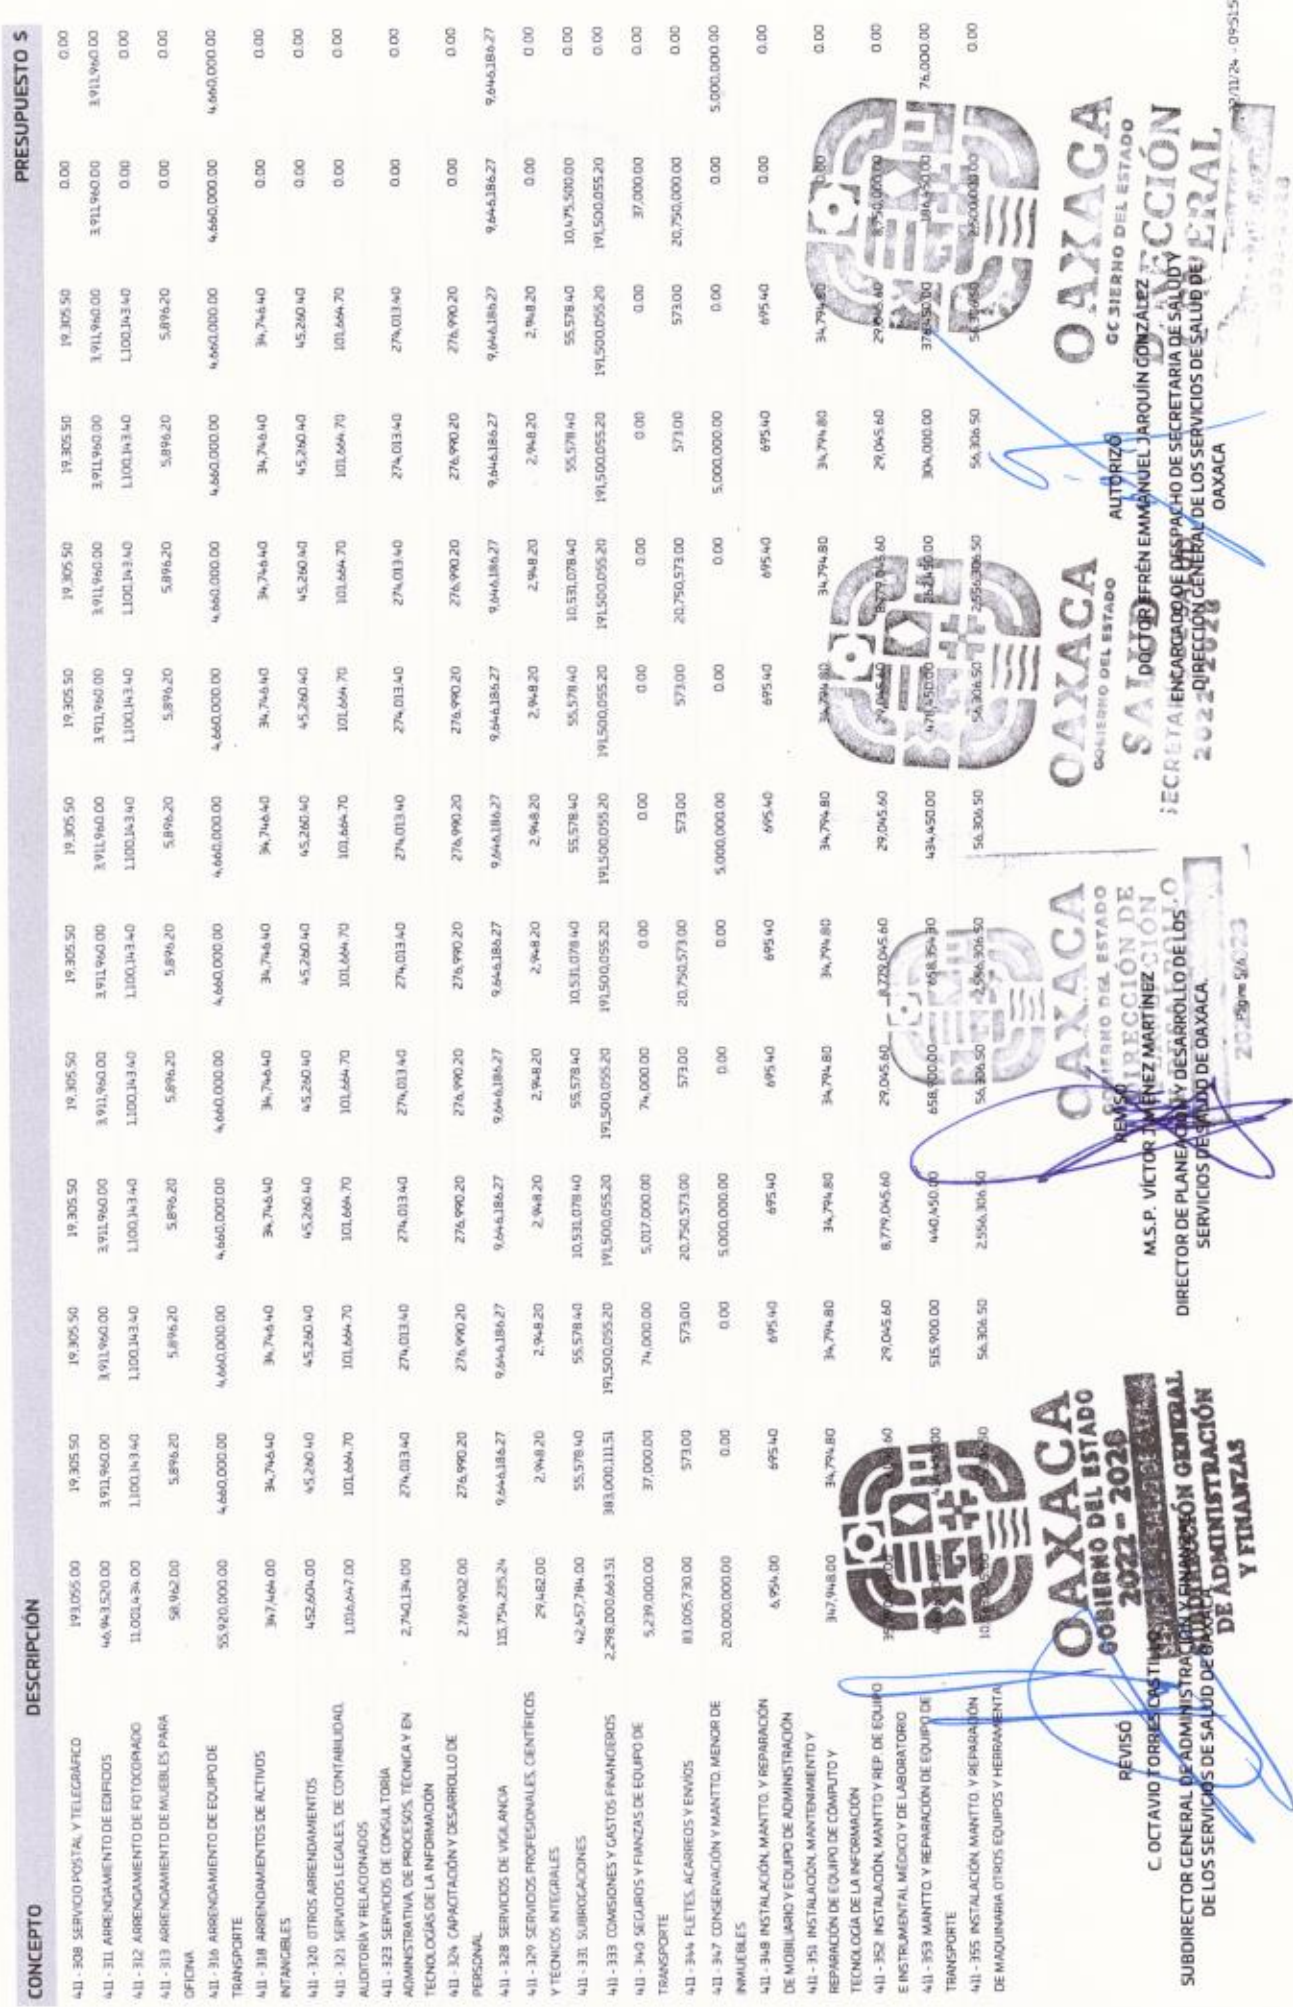 CONCEPTO DESCRIPCIÓN PRESUPUESTO $
411 - 308 SERVICIO POSTAL Y TELEGRÁFICO 193,055.00 19,305.50 19,305.50 19,305.50 19,305.50 19,305.50 19,305.50 19,305.50 19,305.50 19,305.50 19,305.50 0.00 0.00
411 - 311 ARRENDAMIENTO DE EDIFICIOS 46,943,520.00 3,911,960.00 3,911,960.00 3,911,960.00 3,911,960.00 3,911,960.00 3,911,960.00 3,911,960.00 3,911,960.00 3,911,960.00 3,911,960.00 3,911,960.00 3,911,960.00
411 - 312 ARRENDAMIENTO DE FOTOCOPIADO 11,001,434.00 1,100,143.40 1,100,143.40 1,100,143.40 1,100,143.40 1,100,143.40 1,100,143.40 1,100,143.40 1,100,143.40 1,100,143.40 1,100,143.40 0.00 0.00
411 - 313 ARRENDAMIENTO DE MUEBLES PARA 58,962.00 5,896.20 5,896.20 5,896.20 5,896.20 5,896.20 5,896.20 5,896.20 5,896.20 5,896.20 5,896.20 0.00 0.00
OFICINA
411 - 316 ARRENDAMIENTO DE EQUIPO DE 55,920,000.00 4,660,000.00 4,660,000.00 4,660,000.00 4,660,000.00 4,660,000.00 4,660,000.00 4,660,000.00 4,660,000.00 4,660,000.00 4,660,000.00 4,660,000.00 4,660,000.00
TRANSPORTE
411 - 318 ARRENDAMIENTOS DE ACTIVOS 347,464.00 34,746.40 34,746.40 34,746.40 34,746.40 34,746.40 34,746.40 34,746.40 34,746.40 34,746.40 34,746.40 0.00 0.00
INTANGIBLES
411 - 320 OTROS ARRENDAMIENTOS 452,604.00 45,260.40 45,260.40 45,260.40 45,260.40 45,260.40 45,260.40 45,260.40 45,260.40 45,260.40 45,260.40 0.00 0.00
411 - 321 SERVICIOS LEGALES, DE CONTABILIDAD, 1,016,647.00 101,664.70 101,664.70 101,664.70 101,664.70 101,664.70 101,664.70 101,664.70 101,664.70 101,664.70 101,664.70 0.00 0.00
AUDITORÍA Y RELACIONADOS
411 - 323 SERVICIOS DE CONSULTORÍA 2,740,134.00 274,013.40 274,013.40 274,013.40 274,013.40 274,013.40 274,013.40 274,013.40 274,013.40 274,013.40 274,013.40 0.00 0.00
ADMINISTRATIVA, DE PROCESOS, TÉCNICA Y EN
TECNOLOGÍAS DE LA INFORMACIÓN
411 - 324 CAPACITACIÓN Y DESARROLLO DE 2,769,902.00 276,990.20 276,990.20 276,990.20 276,990.20 276,990.20 276,990.20 276,990.20 276,990.20 276,990.20 276,990.20 0.00 0.00
PERSONAL
411 - 328 SERVICIOS DE VIGILANCIA 115,754,235.24 9,646,186.27 9,646,186.27 9,646,186.27 9,646,186.27 9,646,186.27 9,646,186.27 9,646,186.27 9,646,186.27 9,646,186.27 9,646,186.27 9,646,186.27 9,646,186.27
411 - 329 SERVICIOS PROFESIONALES, CIENTÍFICOS 29,482.00 2,948.20 2,948.20 2,948.20 2,948.20 2,948.20 2,948.20 2,948.20 2,948.20 2,948.20 2,948.20 0.00 0.00
Y TÉCNICOS INTEGRALES
411 - 331 SUBROGACIONES 42,457,784.00 55,578.40 55,578.40 10,531,078.40 55,578.40 10,531,078.40 55,578.40 55,578.40 10,531,078.40 55,578.40 55,578.40 10,475,500.00 0.00
411 - 333 COMISIONES Y GASTOS FINANCIEROS 2,298,000,663.51 383,000,111.51 191,500,055.20 191,500,055.20 191,500,055.20 191,500,055.20 191,500,055.20 191,500,055.20 191,500,055.20 191,500,055.20 191,500,055.20 191,500,055.20 0.00
411 - 340 SEGUROS Y FIANZAS DE EQUIPO DE 5,239,000.00 37,000.00 74,000.00 5,017,000.00 74,000.00 0.00 0.00 0.00 0.00 0.00 0.00 37,000.00 0.00
TRANSPORTE
411 - 344 FLETES, ACARREOS Y ENVÍOS 83,005,730.00 573.00 573.00 20,750,573.00 573.00 20,750,573.00 573.00 573.00 20,750,573.00 573.00 573.00 20,750,000.00 0.00
411 - 347 CONSERVACIÓN Y MANTTO. MENOR DE 20,000,000.00 0.00 0.00 5,000,000.00 0.00 0.00 5,000,000.00 0.00 0.00 5,000,000.00 0.00 0.00 5,000,000.00
INMUEBLES
411 - 348 INSTALACIÓN, MANTTO. Y REPARACIÓN 6,954.00 695.40 695.40 695.40 695.40 695.40 695.40 695.40 695.40 695.40 695.40 0.00 0.00
DE MOBILIARIO Y EQUIPO DE ADMINISTRACIÓN
411 - 351 INSTALACIÓN, MANTENIMIENTO Y
REPARACIÓN DE EQUIPO DE CÓMPUTO Y 347,948.00 34,794.80 34,794.80 34,794.80 34,794.80 34,794.80 34,794.80 34,794.80 34,794.80 34,794.80 34,794.80 0.00 0.00
TECNOLOGÍA DE LA INFORMACIÓN
411 - 352 INSTALACIÓN, MANTTO Y REP. DE EQUIPO 29,045.60 8,779,045.60 29,045.60 8,779,045.60 29,045.60 29,045.60 8,779,045.60 29,045.60 29,045.60 8,750,000.00 0.00
E INSTRUMENTAL MÉDICO Y DE LABORATORIO
411 - 353 MANTTO. Y REPARACIÓN DE EQUIPO DE 515,900.00 440,450.00 658,900.00 658,354.30 434,450.00 470,450.00 262,450.00 304,000.00 376,450.00 186,450.00 76,000.00
TRANSPORTE
411 - 355 INSTALACIÓN, MANTTO. Y REPARACIÓN 56,306.50 2,556,306.50 56,306.50 2,556,306.50 56,306.50 56,306.50 2,556,306.50 56,306.50 56,306.50 2,500,000.00 0.00
DE MAQUINARIA OTROS EQUIPOS Y HERRAMIENTA
OAXACA
GOBIERNO DEL ESTADO
2022 - 2028
SUBDIRECCIÓN GENERAL
DE ADMINISTRACIÓN
Y FINANZAS
REVISÓ
C. OCTAVIO TORRES CASTILLO
SUBDIRECTOR GENERAL DE ADMINISTRACIÓN Y FINANZAS
DE LOS SERVICIOS DE SALUD DE OAXACA
OAXACA
GOBIERNO DEL ESTADO
DIRECCIÓN DE
REVISÓ
M.S.P. VÍCTOR JIMÉNEZ MARTÍNEZ
DIRECTOR DE PLANEACIÓN Y DESARROLLO DE LOS
SERVICIOS DE SALUD DE OAXACA.
Página 5/6
OAXACA
GOBIERNO DEL ESTADO
SALUD
2022-2028
OAXACA
GOBIERNO DEL ESTADO
DIRECCIÓN
GENERAL
AUTORIZÓ
DOCTOR EFRÉN EMMANUEL JARQUÍN GONZÁLEZ
ENCARGADO DE DESPACHO DE SECRETARIA DE SALUD Y
DIRECCIÓN GENERAL DE LOS SERVICIOS DE SALUD DE
OAXACA